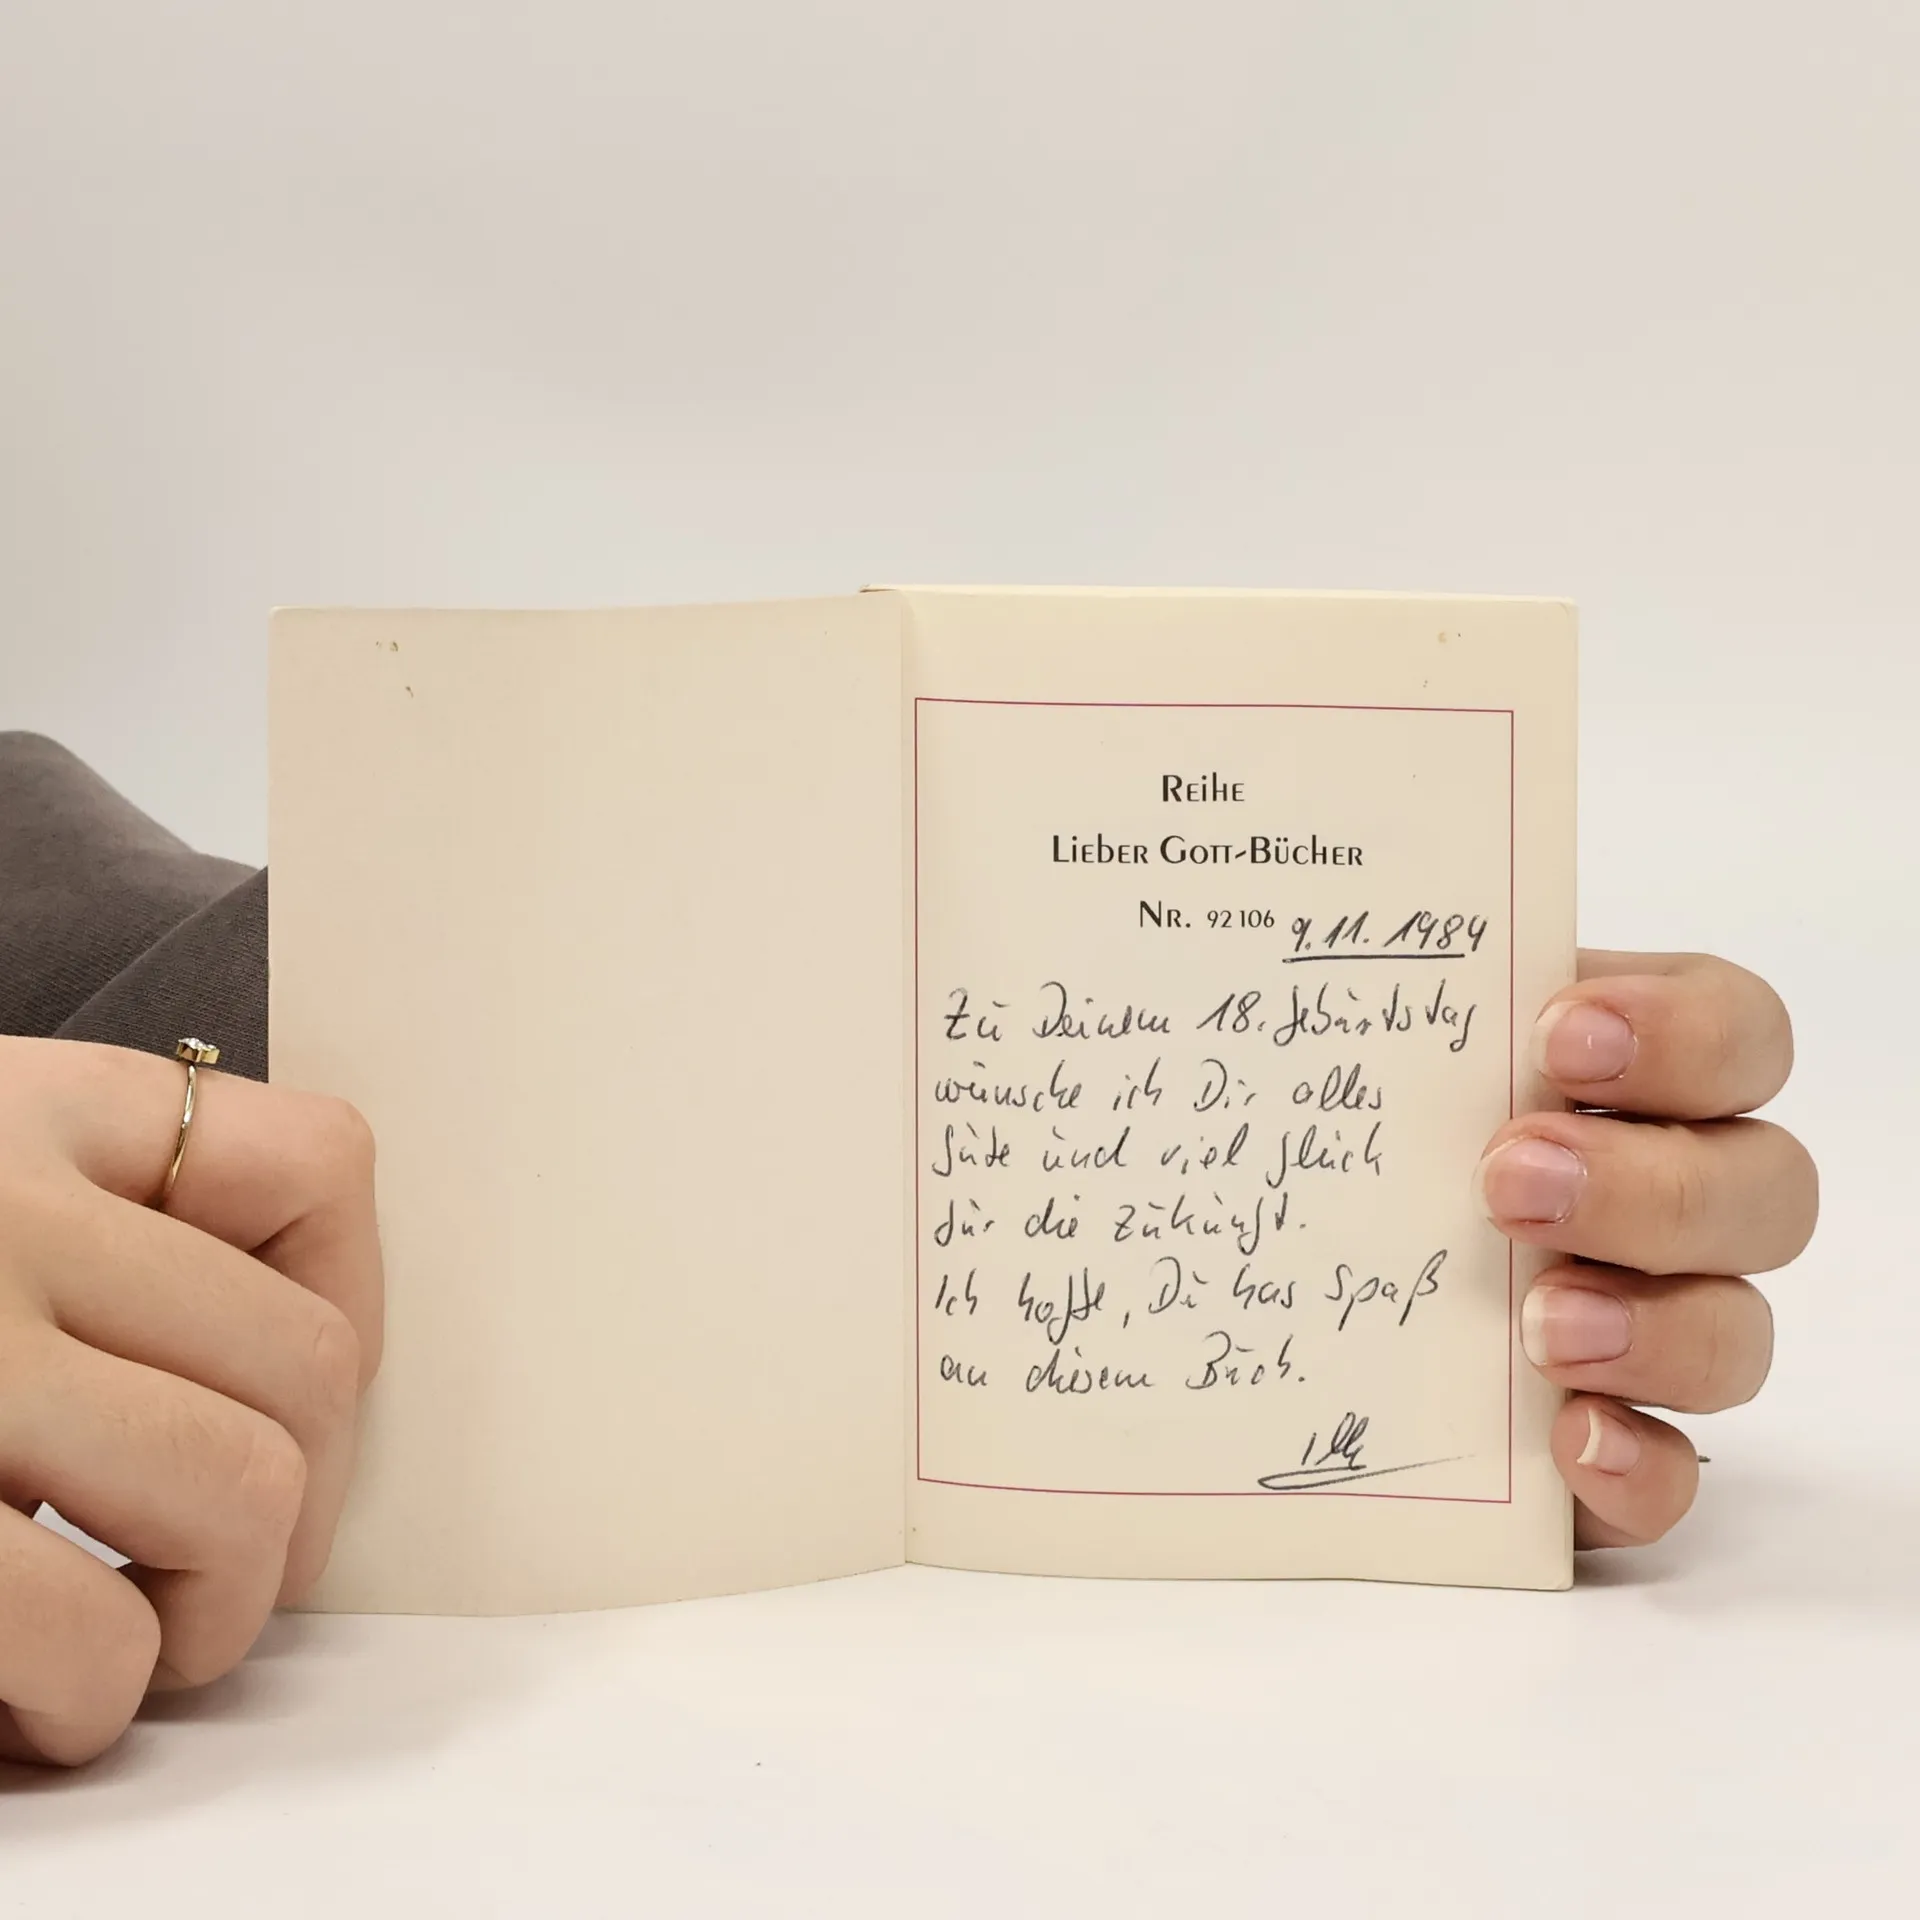 Reihe
Lieber Gott-Bücher
Nr. 92106 9.11.1984
Zu Deinem 18. Geburtstag
wünsche ich Dir alles
Gute und viel Glück
für die Zukunft.
Ich hoffe, Du has Spaß
an diesem Buch.